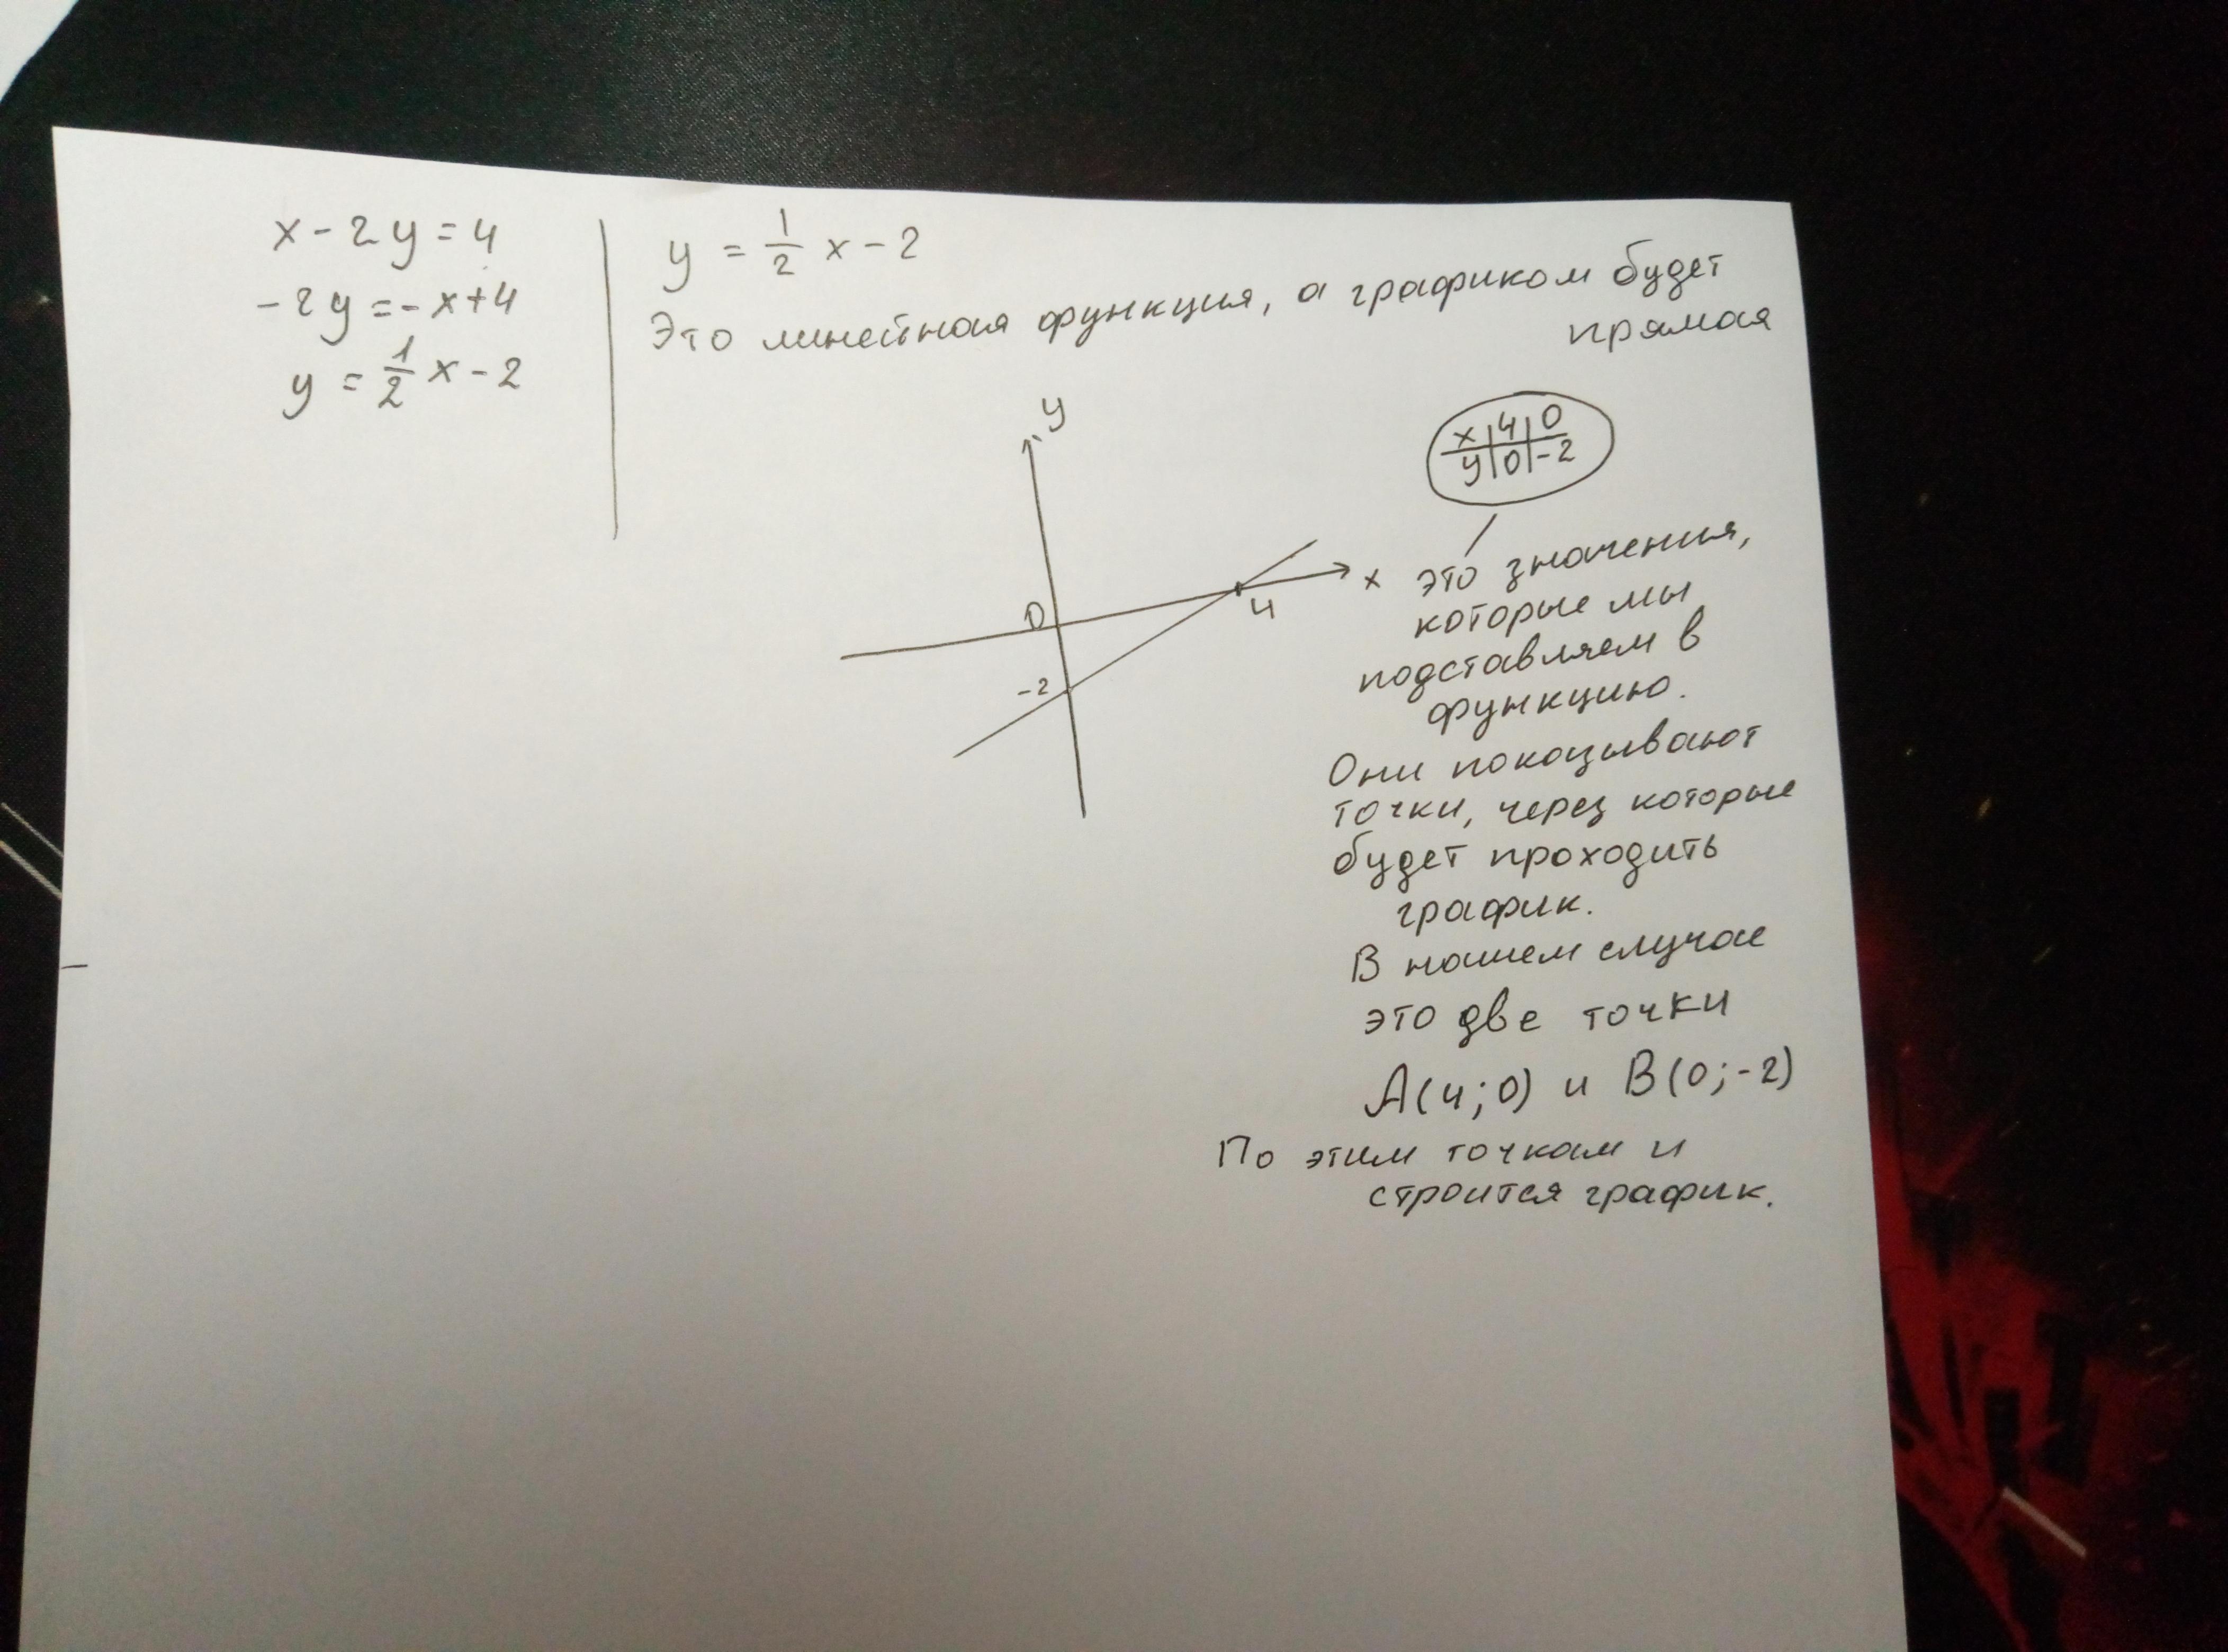 x - 2y = 4
-2y = -x + 4
y = 1/2 x - 2
y = 1/2 x - 2
Это линейная функция, а графиком будет
прямая
y
x
0
4
-2
x | 4 | 0
y | 0 | -2
это значения,
которые мы
подставляем в
функцию.
Они показывают
точки, через которые
будет проходить
график.
В нашем случае
это две точки
A(4;0) и B(0;-2)
По этим точкам и
строится график.